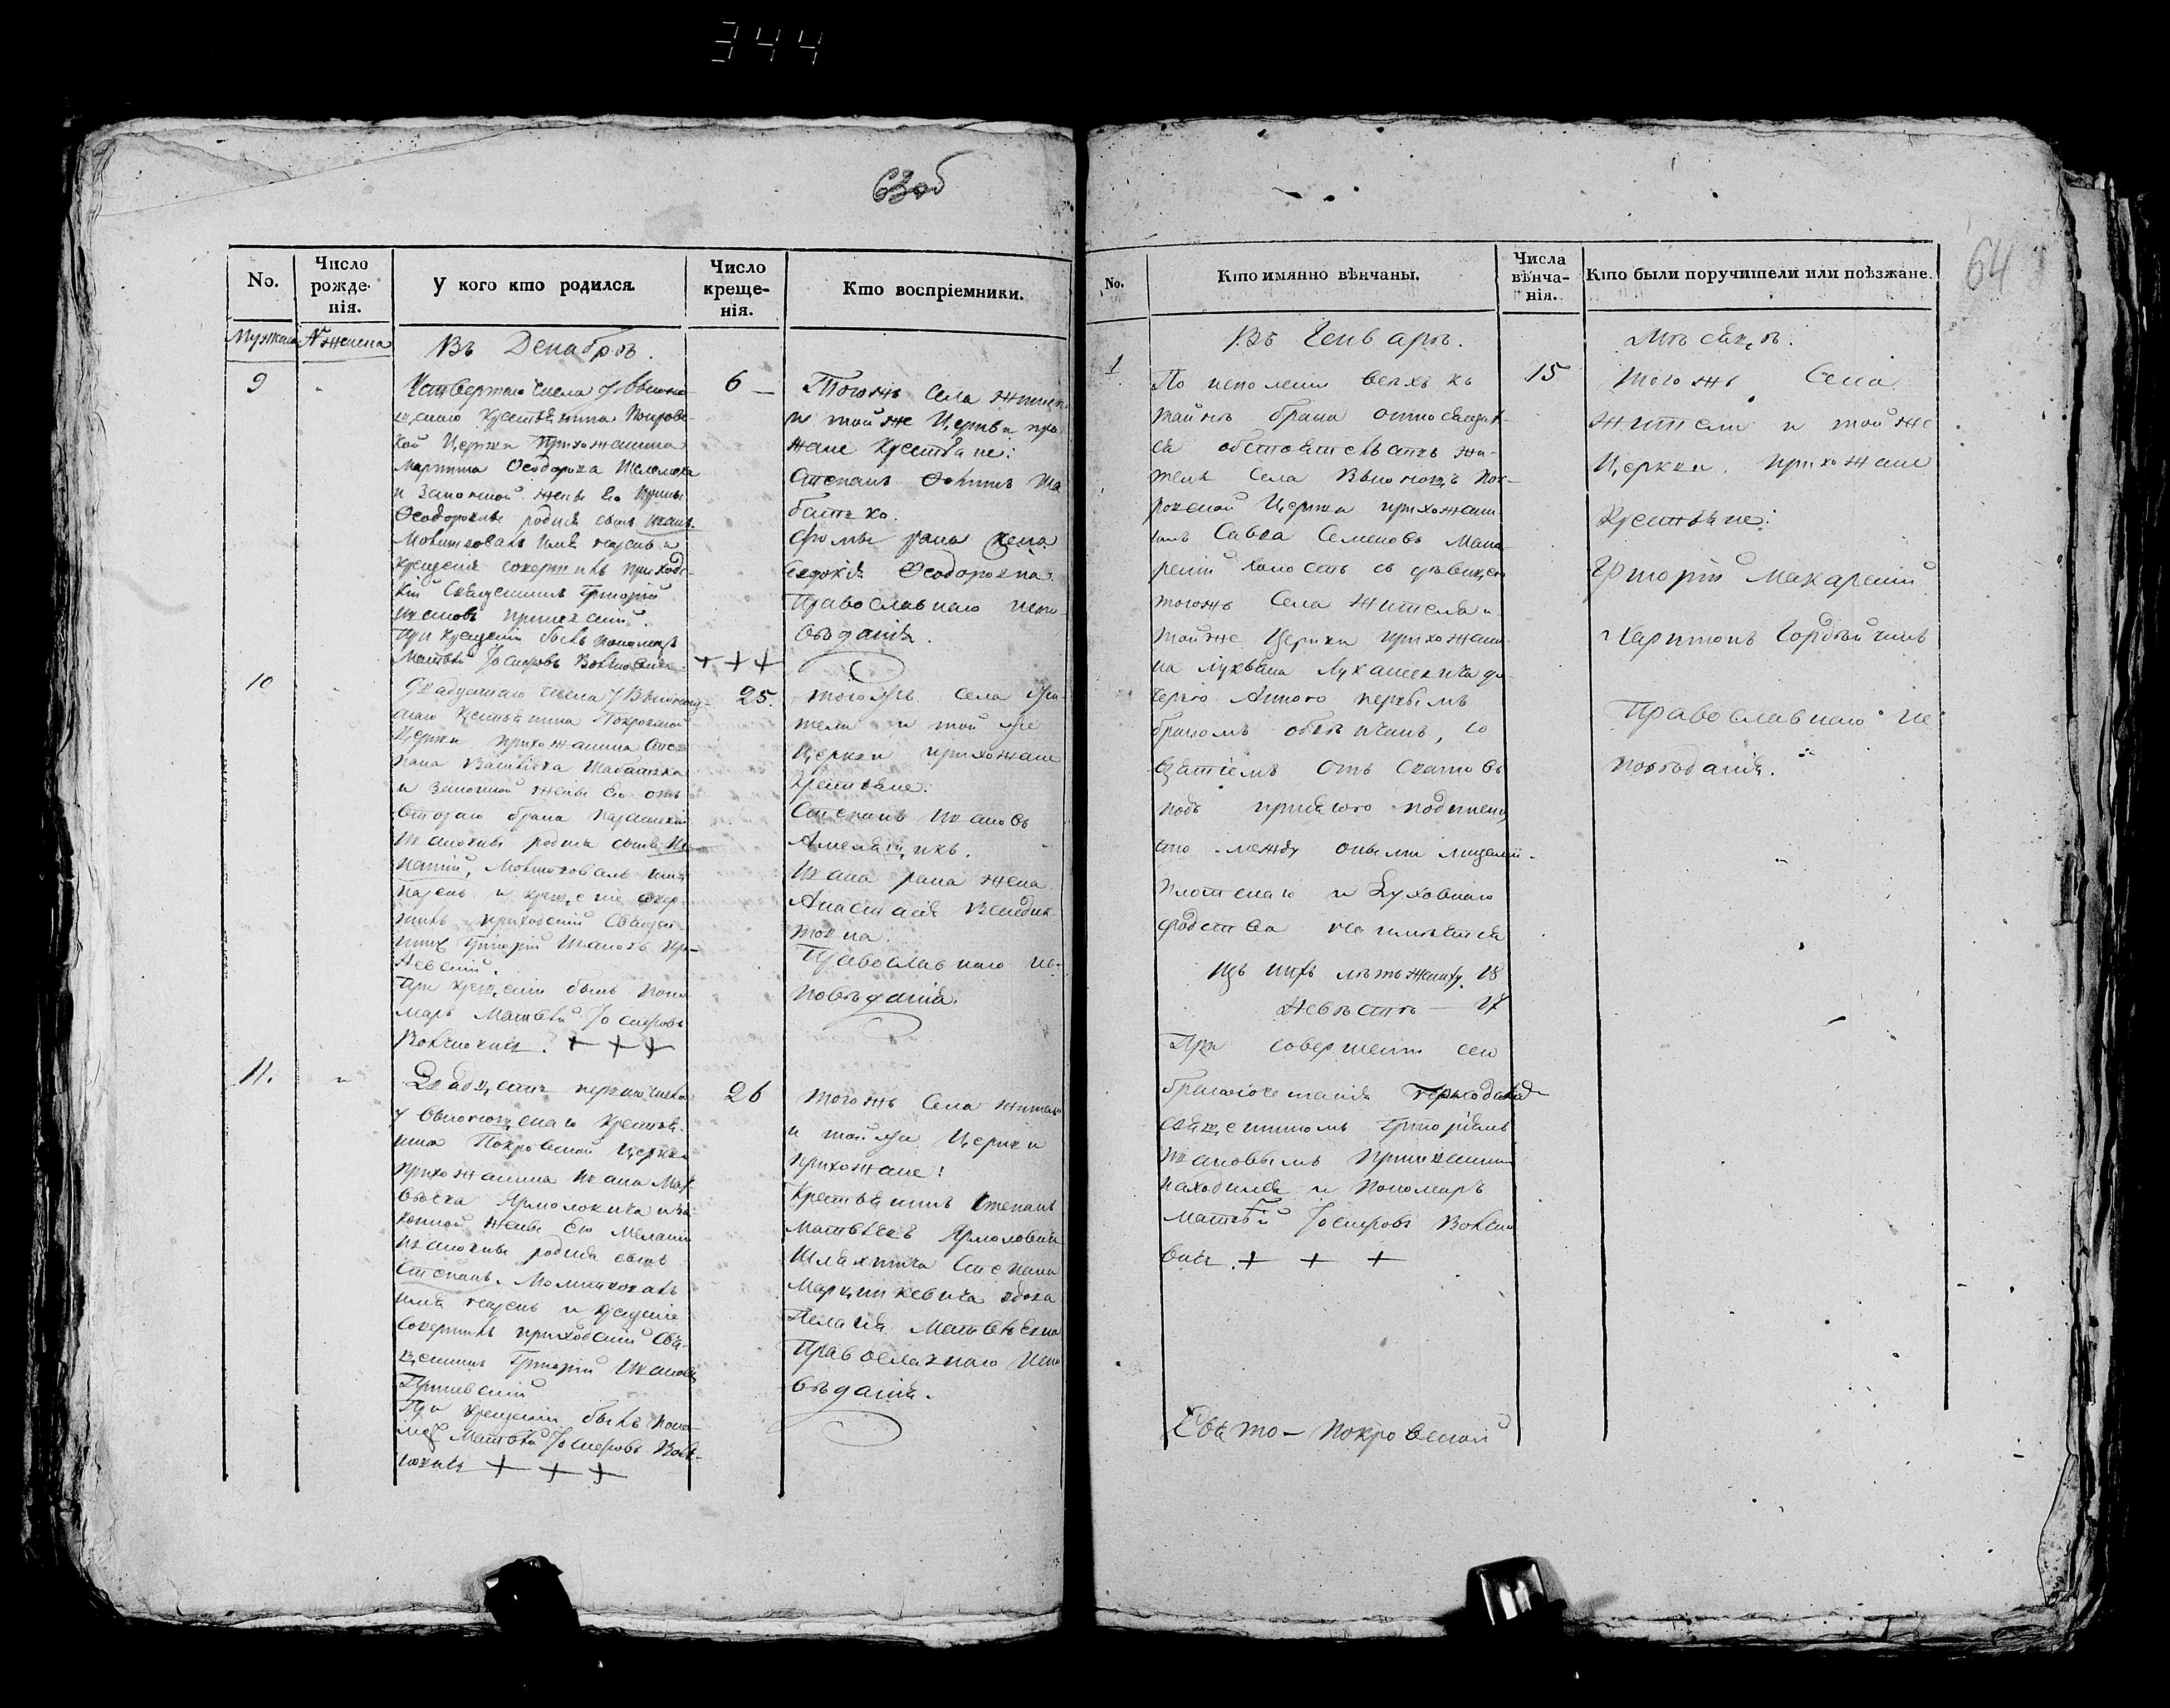 344
63об
64
No.
Число рожде- нія.
У кого кто родился.
Число креще- нія.
Кто воспріемники.
Мужеска
женска
Въ Декабрѣ.
9
Четвертаго числа у
крестьянина Покров-
кой Церкви прихожанина
Мартина Ѳеодорова
и законной жены его Ирины
Ѳеодоровны родися сынъ Иванъ.
Молитвовалъ имя нареклъ и
крещенія совершилъ приход-
кій Священникъ Григорій
Ивановъ
При крещеніи былъ пономарь
Матвѣй Іосифовъ
6 —
Тогожъ села жители
и той же Церкви при-
жане крестьяне:
Стефанъ
Ша
батько.
жена
Евдокія Ѳеодоровна
Православнаго испо-
вѣданія.
10
Двадцетаго числа у
скаго крестьянина Покровской
Церкви прихожанина Сте-
пана Васильева Шабатька
и законной жены его отъ
втораго брака Параскевы
Ивановны родися сынъ Иг-
натій, Молитвовалъ имя
нареклъ и крещеніе совер-
шилъ приходскій Священ-
никъ Григорій Ивановъ
При крещеніи былъ поно
марь Матвѣй Іосифовъ
+ + +
25.
тогожъ села жи-
тели и той же
Церкви прихожане
крестьяне:
Стефанъ Ивановъ
Ивана жена
Анастасія Венедик-
това.
Православнаго ис-
повѣданія.
11.
Двадцать первого числа
у крестья-
нина Покровской Церкви
прихожанина Ивана Мат-
вѣева Ярмоловича и за-
конной жены его Меланіи
Ивановны родися сынъ
Степанъ. Молитвовалъ
имя нареклъ и крещеніе
совершилъ приходскій Свя-
щенникъ Григорій Ивановъ
При крещеніи былъ поно-
марь Матвѣй Іосифовъ
+ + +
26
тогожъ Села жители
и той же Церкви
прихожане:
Крестьянинъ Степанъ
Матвѣевъ Ярмоловичъ
Шляхтича Степана
Марцинкевича вдова
Пелагія Матвѣевна
Православнаго испо
вѣданія.
No.
Кто имянно вѣнчаны.
Числа вѣнча- нія.
Кто были поручители или поѣзжане.
Въ Генварѣ.
Мѣсяцѣ.
1
По исполненіи всѣхъ къ
тайнѣ брака относящих-
ся обстоятельствъ жи-
тель Села Пок-
ровской Церкви прихожан-
инъ Савва Семеновъ Мака-
рскій холостъ съ дѣвицею
тогожъ Села жителя и
той же Церкви прихожани-
на Лукьяна Лукашевича до-
черью Анною первымъ
бракомъ обвѣнчанъ, со
взятіемъ отъ сватовъ
подъ присягою подписки
что между оными лицами
плотскаго и духовнаго
родства не имѣется
изъ нихъ лѣтъ жениху 18
Невѣстѣ — 17
При совершеніи сего
бракосочетанія приходскимъ
священникомъ Григоріемъ
Ивановымъ
находился и пономарь
Матвѣй Іосифовъ
+ + +
15
тогожъ Села
жители и той же
Церкви прихожане
крестьяне:
Григорій Макарскій
Харитонъ
Православнаго ис
повѣданія.
Свято-Покровской